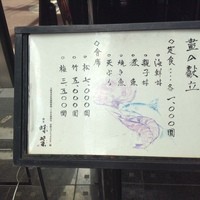 昼の献立
○定食…各一、〇〇〇円
海鮮丼
親子丼
煮魚
焼き魚
天ぷら
○会席
松 七、〇〇〇円
竹 五、〇〇〇円
梅 三、五〇〇円